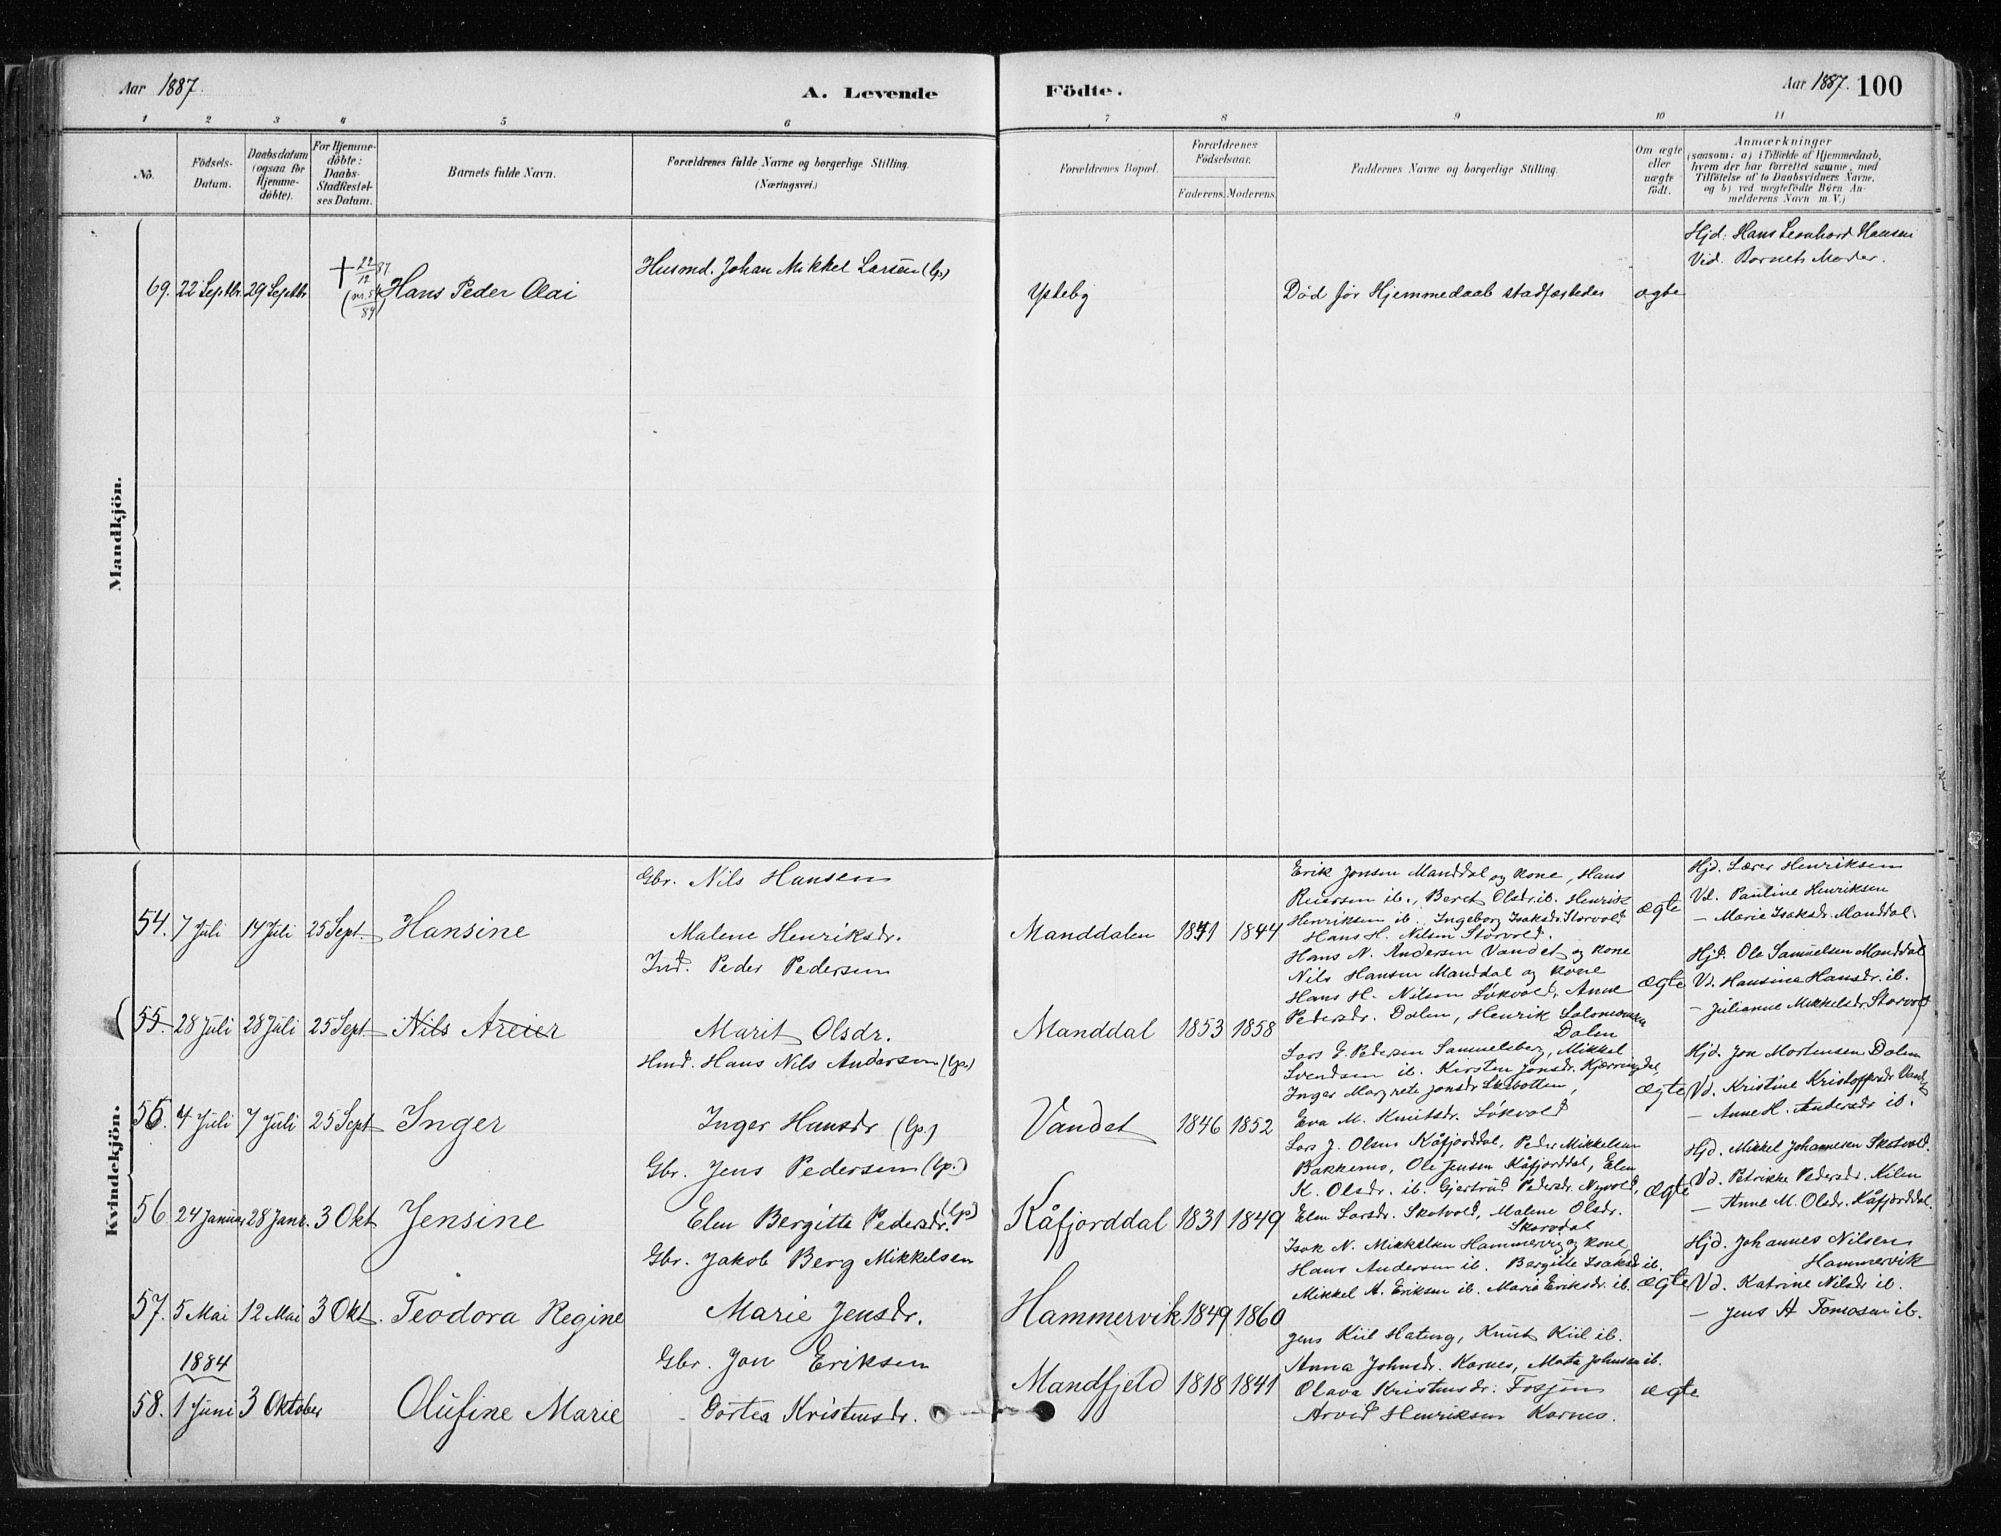 Aar 1887.
A. Levende
Födte.
Aar 1887. 100
1 2 3 4 5 6 7 8 9 10 11
No.
Födsels-Datum.
Daabsdatum (ogsaa for Hjemme-döbte).
For Hjemme-döbte: Daabs-Stadfestel-ses Datum.
Barnets fulde Navn.
Forældrenes fulde Navne og borgerlige Stilling. (Næringsvei.)
Forældrenes Bopæl.
Forældrenes Födselsaar.
Faderens. Moderens.
Faddernes Navne og borgerlige Stilling.
Om ægte eller uægte født.
Anmærkninger
(saasom: a) i Tilfælde af Hjemmedaab,
hvem der har forrettet samme, med
Tilföielse af to Daabsvidners Navne,
og b) ved uægtefödte Börn An-
melderens Navn m. V.)
Mandkjön.
69. 22 Septbr. 29 Septbr. † 22/12 87 Hans Peder Olai
Husmd. Johan Mikkel Larsen (lp.)
Ysteby
Død før Hjemmedaab stadfæstedes
ægte
Hjd: Hans Leonhard Hansen
Vid. Barnets Moder.
Kvindekjön.
54. 7 Juli 14 Juli 25 Sept. Hansine
Gbr. Nils Hansen
Malene Henriksdr.
Manddalen 1841 1844
Erik Jonsen Manddal og kone, Hans
ib., Beret Olsdr. ib. Henrik
Henriksen ib. Ingeborg Isaksdr. Storvold
Hans H. Nilsen Storvold.
ægte
Hjd. Lærer Henriksen
Vd. Pauline Henriksen
— Marie Isaksdr. Manddal.
(55. 28 Juli 28 Juli 25 Sept. Nils Areier
Ind. Peder Pedersen
Marit Olsdr.
Manddal 1853 1858
Hans N. Andersen Vandet og kone
Nils Hansen Manddal og kone
Hans H. Nilsen Løkvold, Anne
Pedersdr. Dalen, Henrik Salomonsen
Dalen
ægte
Hjd. Ole Samuelsen Manddal
Vd. Hansine Hansdr. ib.
— Julianne Mikkelsdr. Storvold)
55. 4 Juli 7 Juli 25 Sept Inger
Hmd. Hans Nils Andersen (lp.)
Inger Hansdr (lp.)
Vandet 1846 1852
Lars E. Pedersen Samuelsberg, Mikkel
Svendsen ib. Kirsten Jonsdr. Kjerringdal,
Inger Margrete Jonsdr. Skibotten,
Eva M. Knutsdr. Løkvold
ægte
Hjd. Jon Mortensen Dalen
Vd. Kristine Kristoffersdr Vandet
— Anne H. Andersdr ib.
56. 24 Januar 28 Janr. 3 Okt Jensine
Gbr. Jens Pedersen (lp.)
Elen Bergitte Pedersdr. (lp)
Kåfjorddal 1831 1849
Lars J. Olsen Kåfjorddal, Peder Mikkelsen
Bakkemo, Ole Jensen Kåfjorddal, Elen
K. Olsdr. ib. Gjertrud Pedersdr. Nyvold,
Elen Larsdr. Skotvold, Malene Olsdr.
Skarvdal
ægte
Hjd. Mikkel Johannesen Skotvold.
Vd. Petrikke Pedersdr. Kilen
— Anne M. Olsdr. Kåfjorddal.
57. 5 Mai 12 Mai 3 Okt. Teodora Regine
Gbr. Jakob Berg Mikkelsen
Marie Jensdr.
Hammervik 1849 1860
Isak N. Mikkelsen Hammervig og kone,
Hans Andersen ib. Bergitte Isaksdr ib.
Mikkel A. Eriksen ib. Marie Eriksdr. ib.
ægte
Hjd. Johannes Nilsen
Hammervik
Vd. Katrine Nilsdr ib.
— Jens A Tomasen ib.
1884
58. 1 Juni 3 Oktober Olufine Marie
Gbr. Jon Eriksen
Dortea Kristensdr.
Mandfjeld 1818 1841
Jens Kiil Hateng, Knut Kiil ib.
Anna Johnsdr. Karnes, Mata Johnsen ib.
Olava Kristensdr. Fossen
Arvid Henriksen Karnes.
ægte